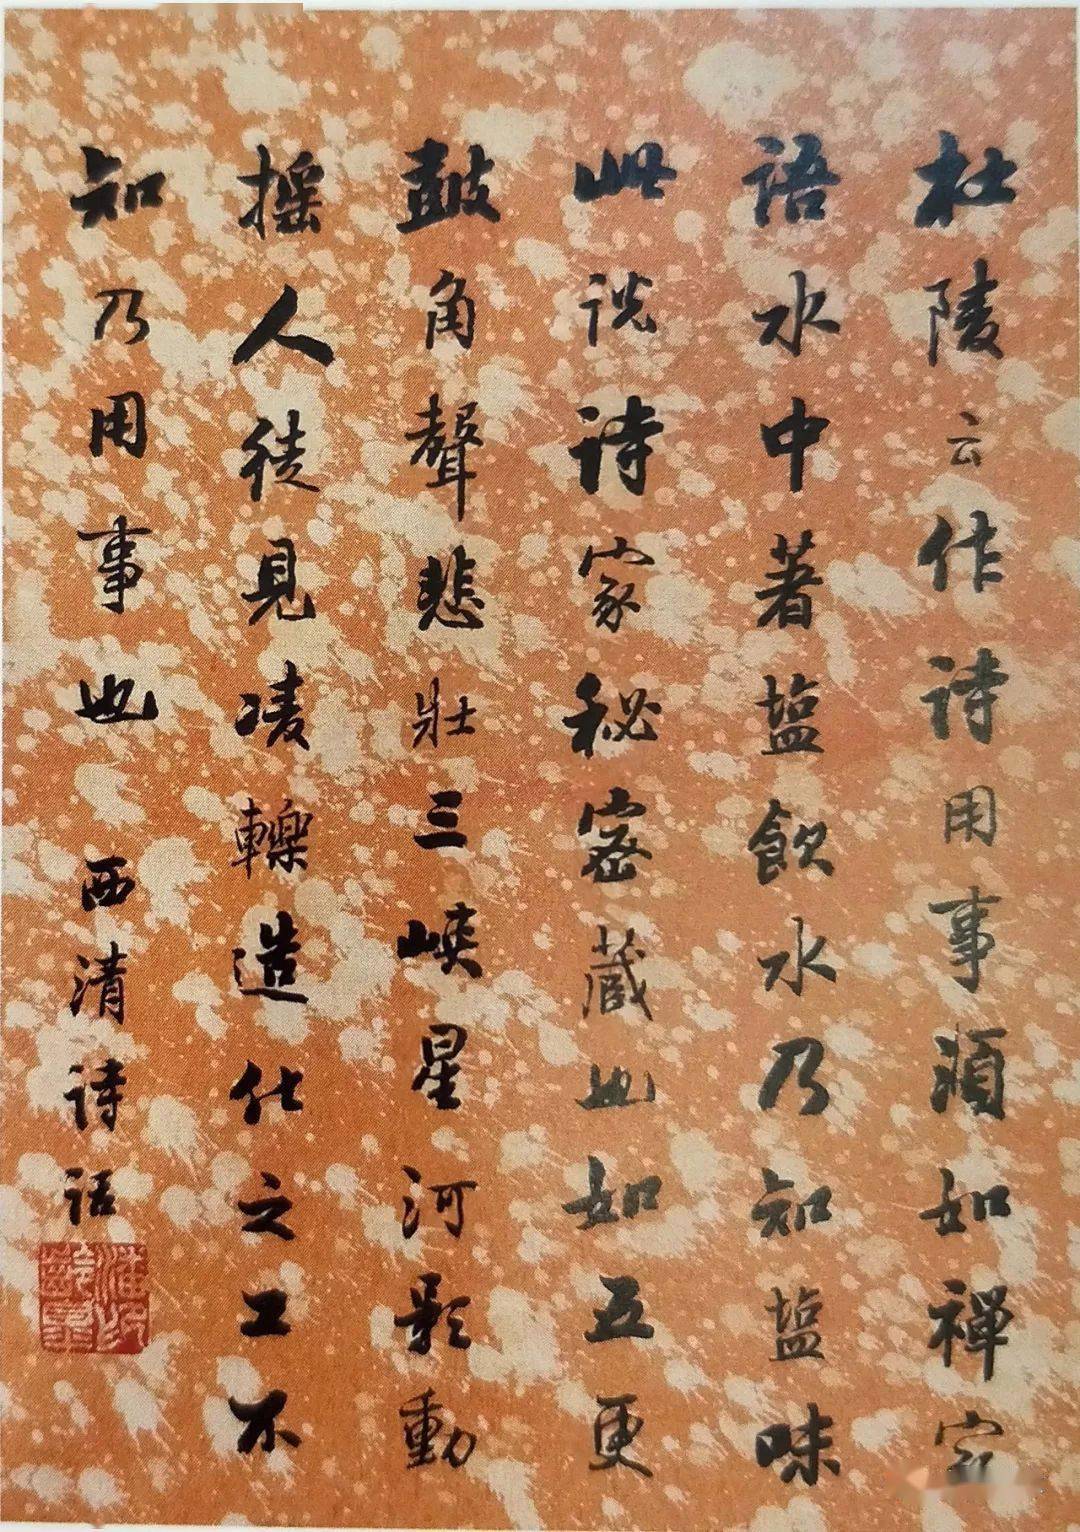 杜陵云作诗用事須如禅家
語水中著塩飲水乃知塩味
此说诗家秘密蔵也如五更
鼓角聲悲壮三峽星河影動
摇人徒見凌轢造化之工不
知乃用事也 西清诗话